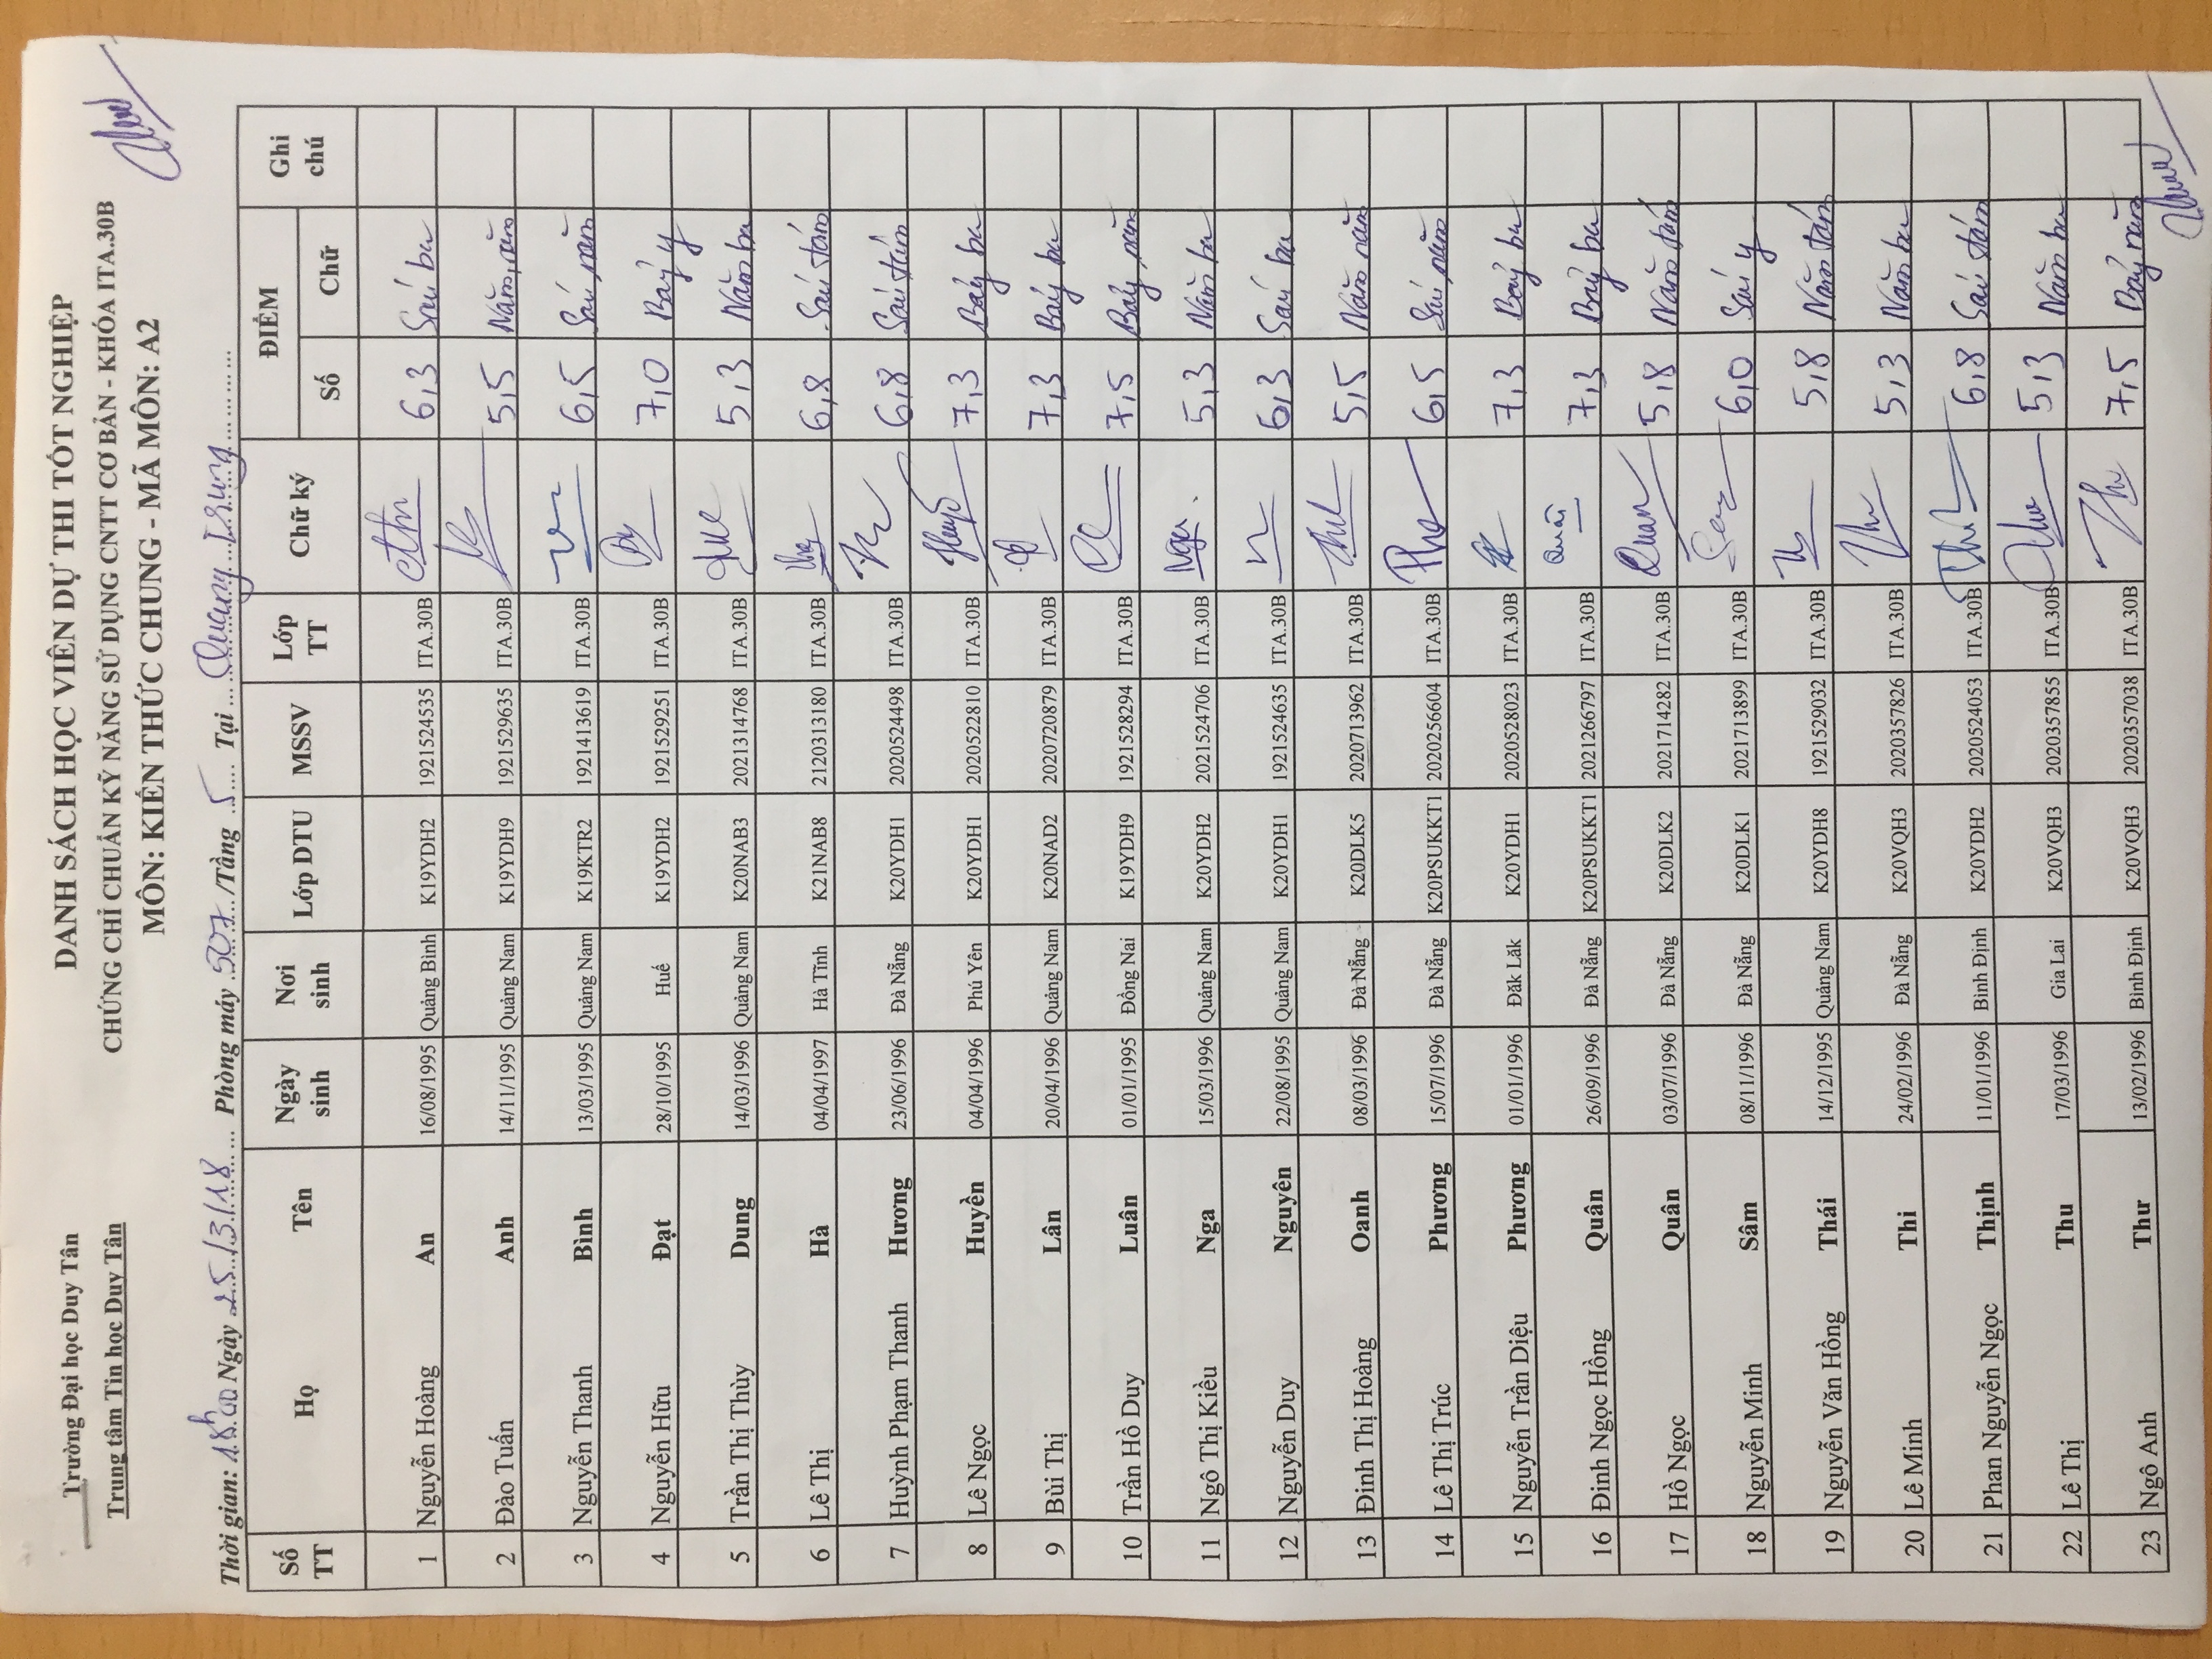 Trường Đại học Duy Tân
Trung tâm Tin học Duy Tân
DANH SÁCH HỌC VIÊN DỰ THI TỐT NGHIỆP
CHỨNG CHỈ CHUẨN KỸ NĂNG SỬ DỤNG CNTT CƠ BẢN - KHÓA ITA.30B
MÔN: KIẾN THỨC CHUNG - MÃ MÔN: A2
Thời gian: 18h00 Ngày 25/3/18 Phòng máy 507/Tầng 5 Tại Quang Trung
Số TT Họ Tên Ngày sinh Nơi sinh Lớp DTU MSSV Lớp TT Chữ ký ĐIỂM Số Chữ Ghi chú
1 Nguyễn Hoàng An 16/08/1995 Quảng Bình K19YDH2 1921524535 ITA.30B 6,3 Sáu ba
2 Đào Tuấn Anh 14/11/1995 Quảng Nam K19YDH9 1921529635 ITA.30B 5,5 Năm năm
3 Nguyễn Thanh Bình 13/03/1995 Quảng Nam K19KTR2 1921413619 ITA.30B 6,5 Sáu năm
4 Nguyễn Hữu Đạt 28/10/1995 Huế K19YDH2 1921529251 ITA.30B 7,0 Bảy y
5 Trần Thị Thùy Dung 14/03/1996 Quảng Nam K20NAB3 2021314768 ITA.30B 5,3 Năm ba
6 Lê Thị Hà 04/04/1997 Hà Tĩnh K21NAB8 2120313180 ITA.30B 6,8 Sáu tám
7 Huỳnh Phạm Thanh Hương 23/06/1996 Đà Nẵng K20YDH1 2020524498 ITA.30B 6,8 Sáu tám
8 Lê Ngọc Huyền 04/04/1996 Phú Yên K20YDH1 2020522810 ITA.30B 7,3 Bảy ba
9 Bùi Thị Lân 20/04/1996 Quảng Nam K20NAD2 2020720879 ITA.30B 7,3 Bảy ba
10 Trần Hồ Duy Luân 01/01/1995 Đồng Nai K19YDH9 1921528294 ITA.30B 7,5 Bảy năm
11 Ngô Thị Kiều Nga 15/03/1996 Quảng Nam K20YDH2 2021524706 ITA.30B Nga 5,3 Năm ba
12 Nguyễn Duy Nguyên 22/08/1995 Quảng Nam K20YDH1 1921524635 ITA.30B 6,3 Sáu ba
13 Đinh Thị Hoàng Oanh 08/03/1996 Đà Nẵng K20DLK5 2020713962 ITA.30B 5,5 Năm năm
14 Lê Thị Trúc Phương 15/07/1996 Đà Nẵng K20PSUKKT1 2020256604 ITA.30B 6,5 Sáu năm
15 Nguyễn Trần Diệu Phương 01/01/1996 Đăk Lăk K20YDH1 2020528023 ITA.30B 7,3 Bảy ba
16 Đinh Ngọc Hồng Quân 26/09/1996 Đà Nẵng K20PSUKKT1 2021266797 ITA.30B Quân 7,3 Bảy ba
17 Hồ Ngọc Quân 03/07/1996 Đà Nẵng K20DLK2 2021714282 ITA.30B Quân 5,8 Năm tám
18 Nguyễn Minh Sâm 08/11/1996 Đà Nẵng K20DLK1 2021713899 ITA.30B 6,0 Sáu y
19 Nguyễn Văn Hồng Thái 14/12/1995 Quảng Nam K20YDH8 1921529032 ITA.30B 5,8 Năm tám
20 Lê Minh Thi 24/02/1996 Đà Nẵng K20VQH3 2020357826 ITA.30B 5,3 Năm ba
21 Phan Nguyễn Ngọc Thịnh 11/01/1996 Bình Định K20YDH2 2020524053 ITA.30B 6,8 Sáu tám
22 Lê Thị Thu 17/03/1996 Gia Lai K20VQH3 2020357855 ITA.30B 5,3 Năm ba
23 Ngô Anh Thư 13/02/1996 Bình Định K20VQH3 2020357038 ITA.30B 7,5 Bảy năm